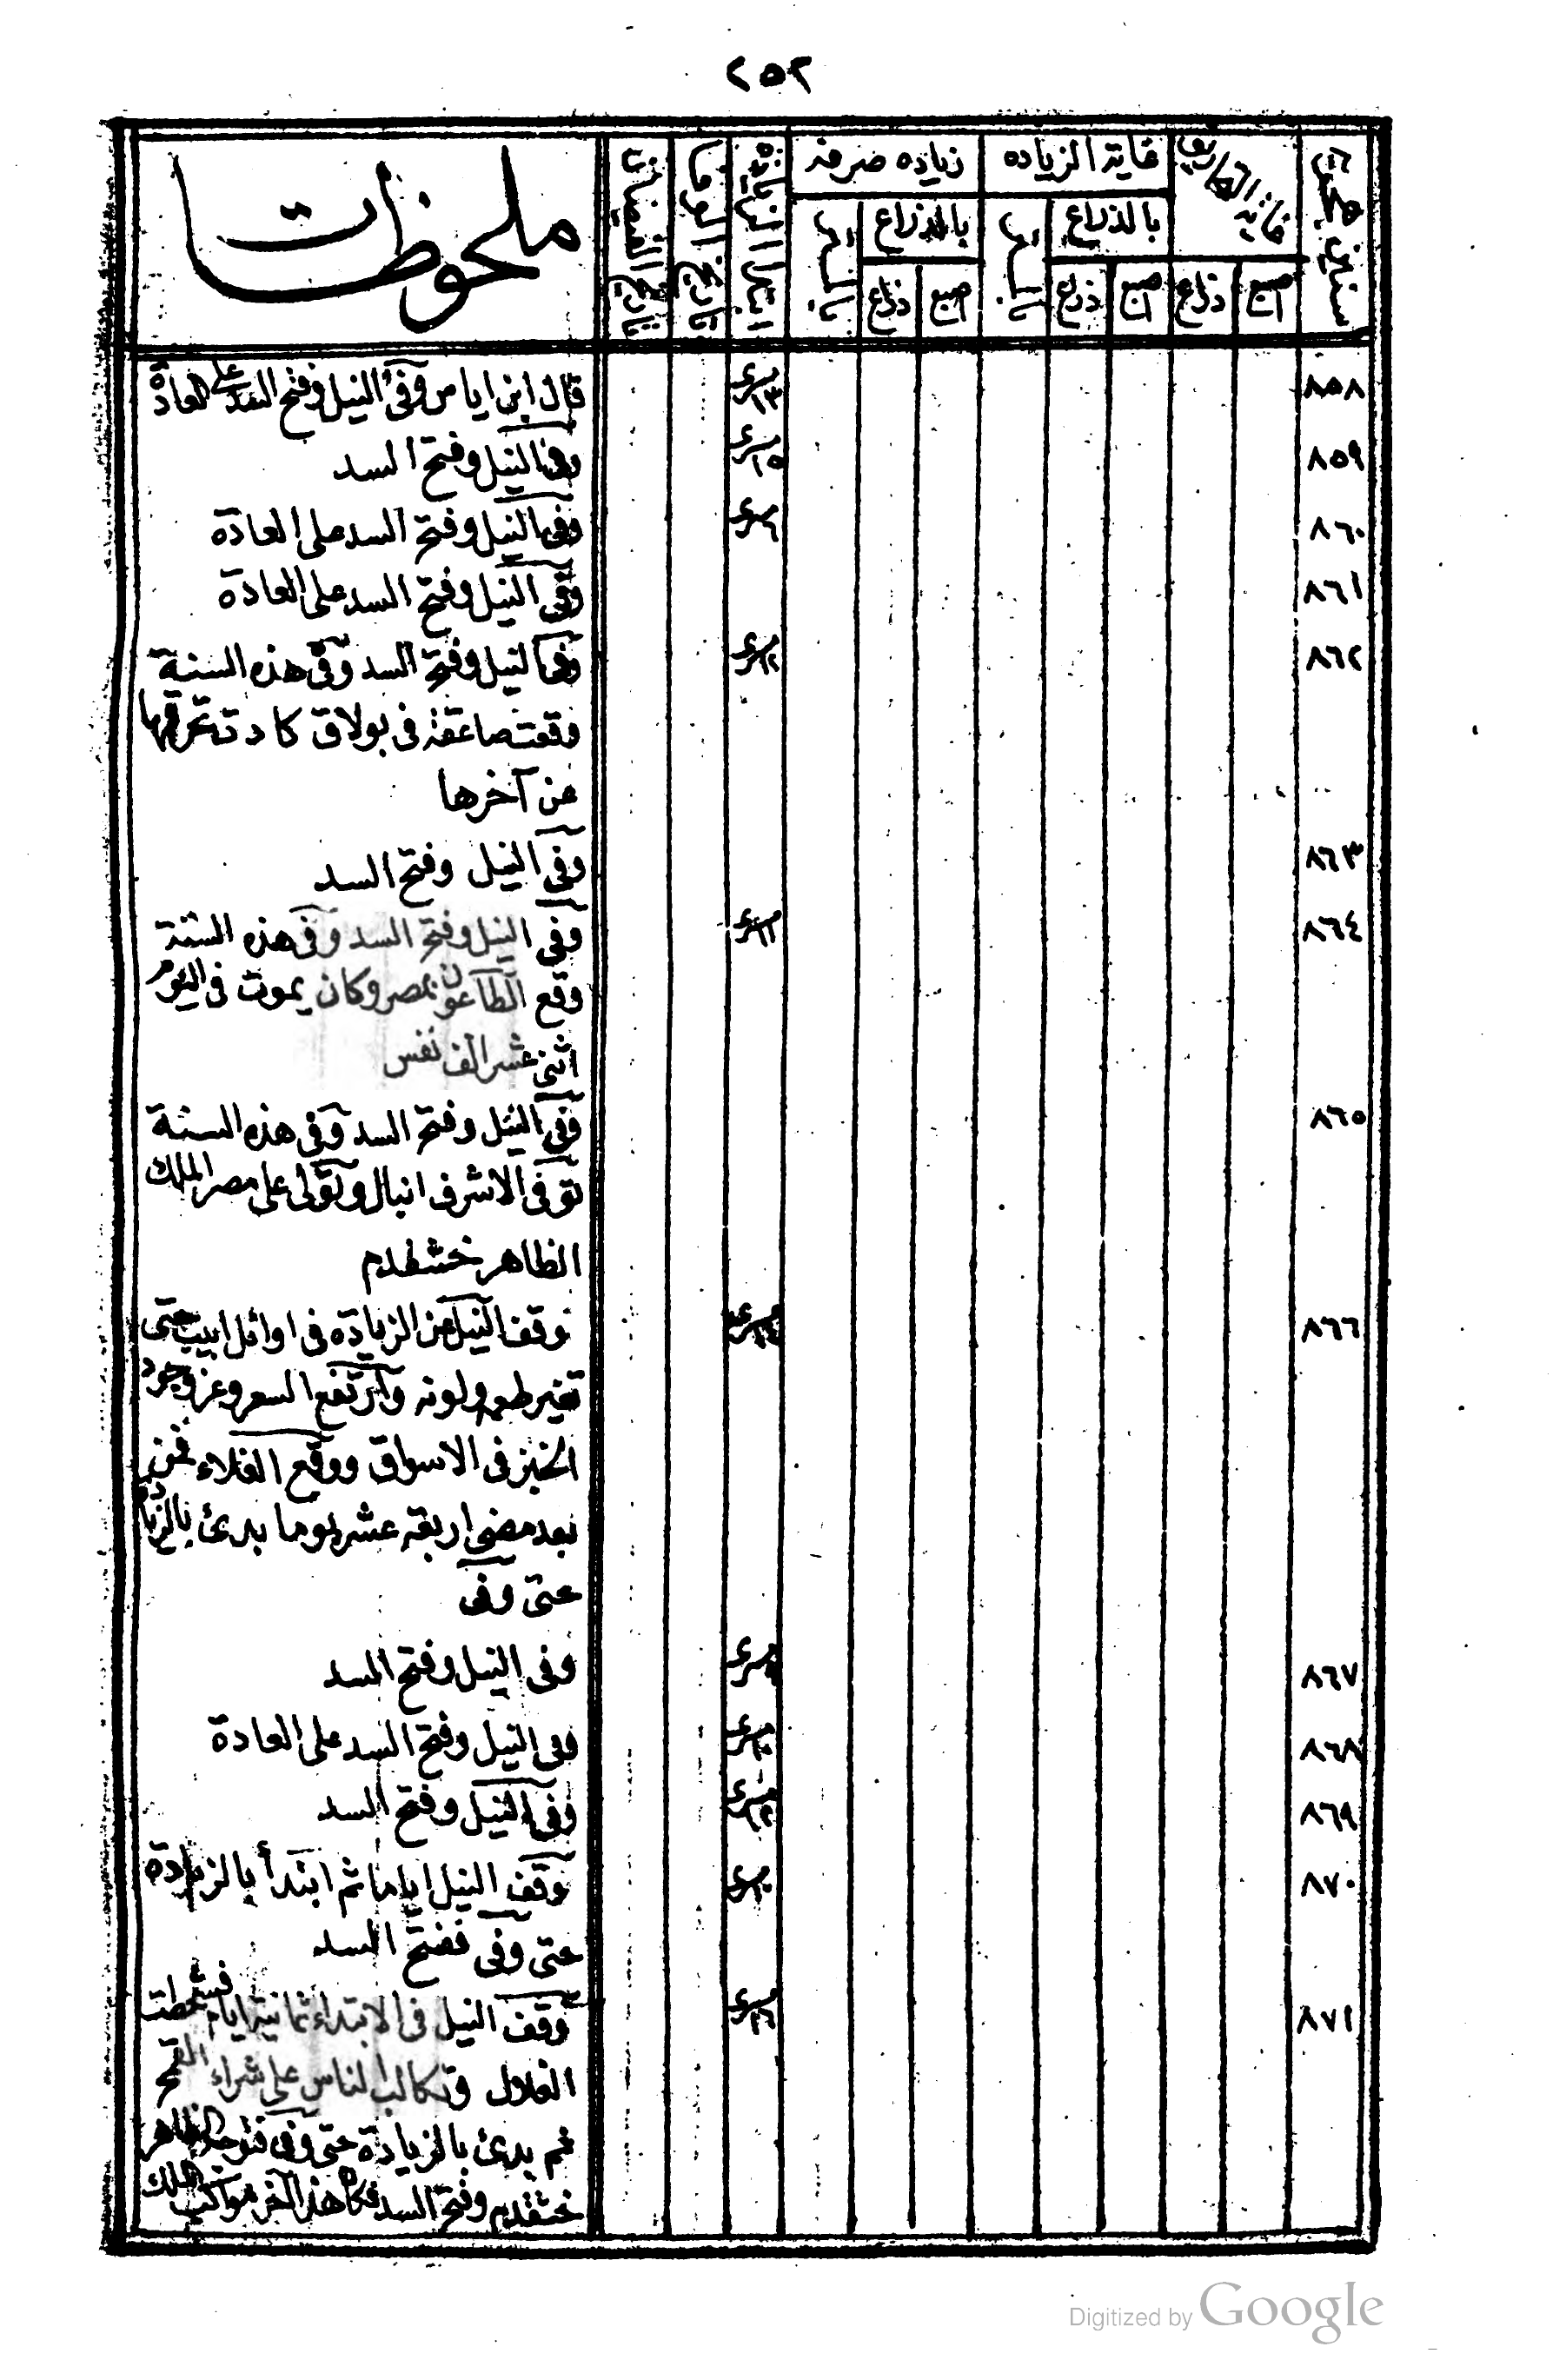 ٢٥٢
سنة هجرية
غاية التحاريق
غاية الزيادة
زيادة صرفة
تاريخ الوفا
تاريخ الفيضان
ملحوظات
بالذراع
بالذراع
اصبع ذراع اصبع ذراع اصبع ذراع
٨٥٨ مسرى ١٣ قال ابن اياس وفى النيل وفتح السد على العادة
٨٥٩ مسرى ١٥ وفى النيل وفتح السد
٨٦٠ مسرى ٦ وفى النيل وفتح السد على العادة
٨٦١ وفى النيل وفتح السد على العادة
٨٦٢ مسرى ١٢ وفى النيل وفتح السد وفى هذه السنة
وقعت صاعقة فى بولاق كادت تحرقها
عن آخرها
٨٦٣ وفى النيل وفتح السد
٨٦٤ مسرى ١١ وفى النيل وفتح السد وفى هذه السنة
وقع الطاعون بمصر وكان يموت فى اليوم
اثنى عشر الف نفس
٨٦٥ وفى النيل وفتح السد وفى هذه السنة
توفى الاشرف انيال وتولى على مصر الملك
الظاهر خشقدم
٨٦٦ مسرى ١٤ توقف النيل عن الزيادة فى اوائل ابيب حتى
تغير طعمه ولونه وارتفع السعر وعز وجود
الخبز فى الاسواق ووقع الغلاء فمن
بعد مضى اربعة عشر يوما بدئ بالزيادة
حتى وفى
٨٦٧ مسرى وفى النيل وفتح السد
٨٦٨ مسرى ١٠ وفى النيل وفتح السد على العادة
٨٦٩ مسرى ١٢ وفى النيل وفتح السد
٨٧٠ مسرى توقف النيل اياما ثم ابتدأ بالزيادة
حتى وفى ففتح السد
٨٧١ مسرى ٢٦ توقف النيل فى الابتداء ثمانية ايام فشحطت
الغلال وتكالب الناس على شراء القمح
ثم بدئ بالزيادة حتى وفى فتوجه الظاهر
خشقدم وفتح السد فكان هذا آخر مواكب الملك
Digitized by Google